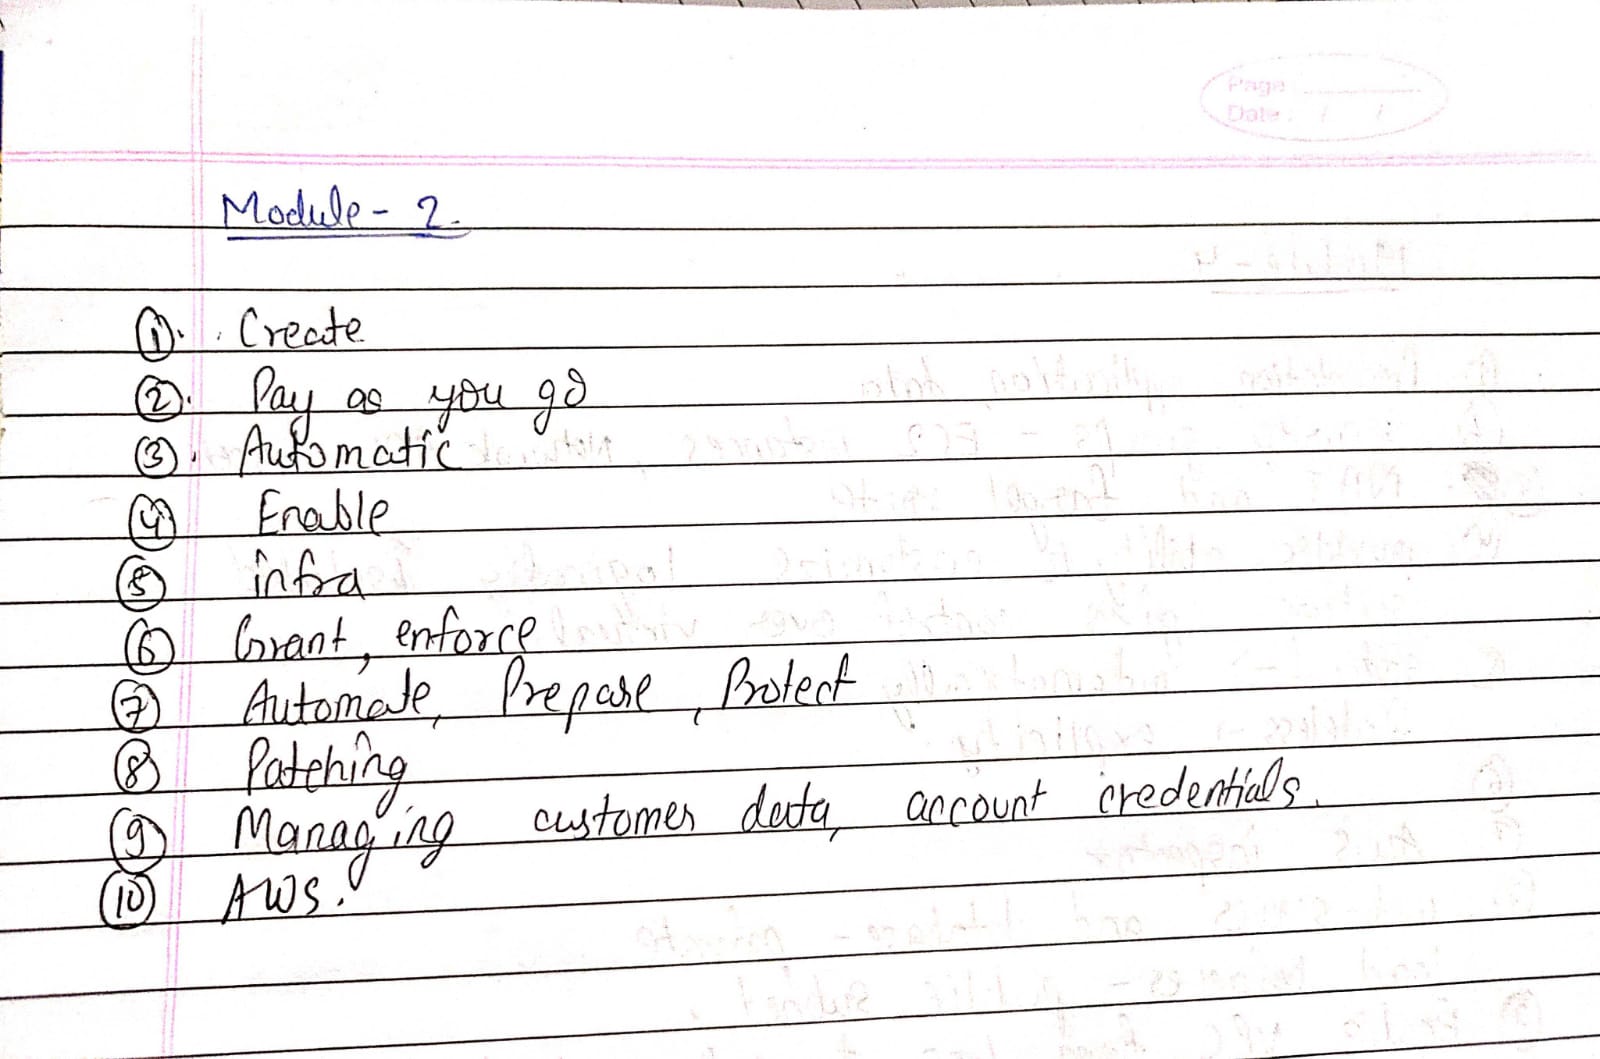 Page
Date : / /
Module - 2.
1. Create
2. Pay as you go
3. Automatic
4 Enable
5 infra
6 Grant, enforce
7 Automate, Prepare, Protect
8 Patching
9 Managing customer data, account credentials.
10 AWS.